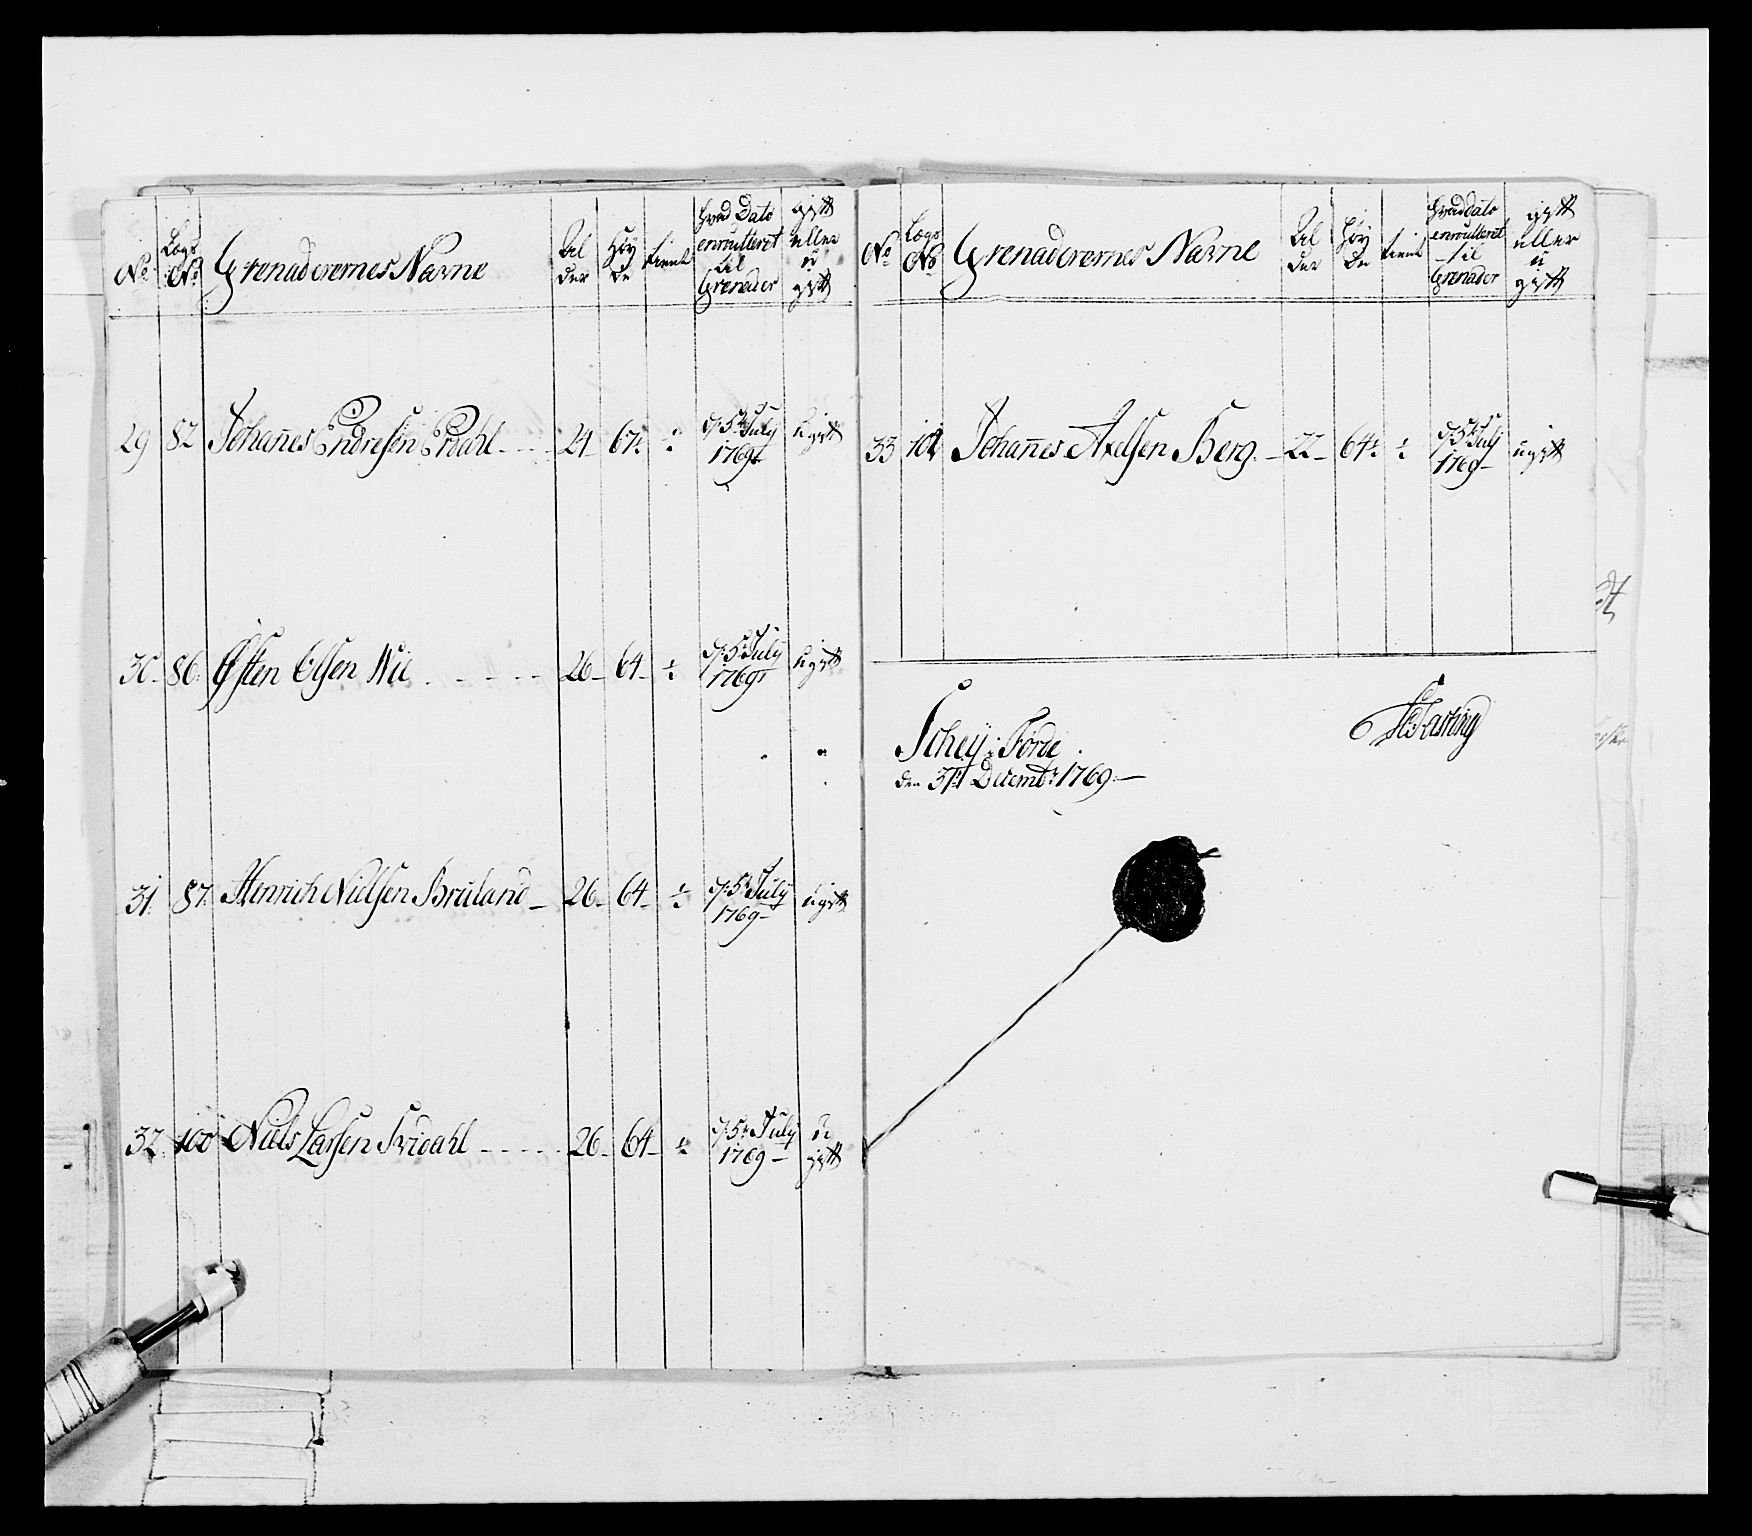 No Lægs No Grenaderernes Navne Alder Høyde tient hvad Dato enroulleret til Grenader gift eller ugift
29 82 Johannes Endresen Erdahl 24 67 ÷ d 5t July 1769 ugift
30 86 Østen Olsen Wie 26 64 ÷ d 5t July 1769 ugift
31 87 Henrich Nielsen Bruland 26 64 ÷ d 5t July 1769 ugift
32 100 Niels Larsen 26 64 ÷ d 5t July 1769 ugift
No Lægs No Grenaderernes Navne Alder Høyde tient hvad dato enroulleret til Grenader gift eller ugift
33 Johannes Axelsen Berg 22 64 ÷ d 5t July 1769 ugift
Schey i Førde
den 31t Decembr 1769